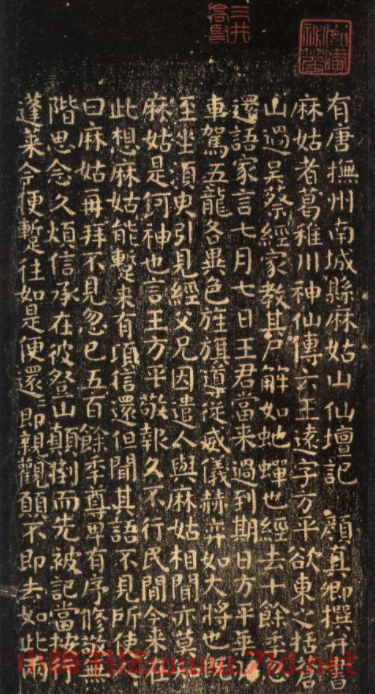 有唐撫州南城縣麻姑山仙壇記 顏真卿撰并書
麻姑者葛稚川神仙傳云王遠字方平欲東之括蒼
山過吳蔡經家教其尸解如蛇蟬也經去十餘年忽
還語家言七月七日王君當來過到期日方平乘羽
車駕五龍各異色旌旗導從威儀赫弈如大將也既
至坐須臾引見經父兄因遣人與麻姑相聞亦莫知
麻姑是何神也言王方平敬報久不行民間今來在
此想麻姑能蹔來有頃信還但聞其語不見所使人
曰麻姑再拜不見忽已五百餘年尊卑有序修敬無
階思念久煩信承在彼登山顛倒而先被記當按行
蓬萊今便蹔往如是便還還即親觀願不即去如此兩
www.71d.net